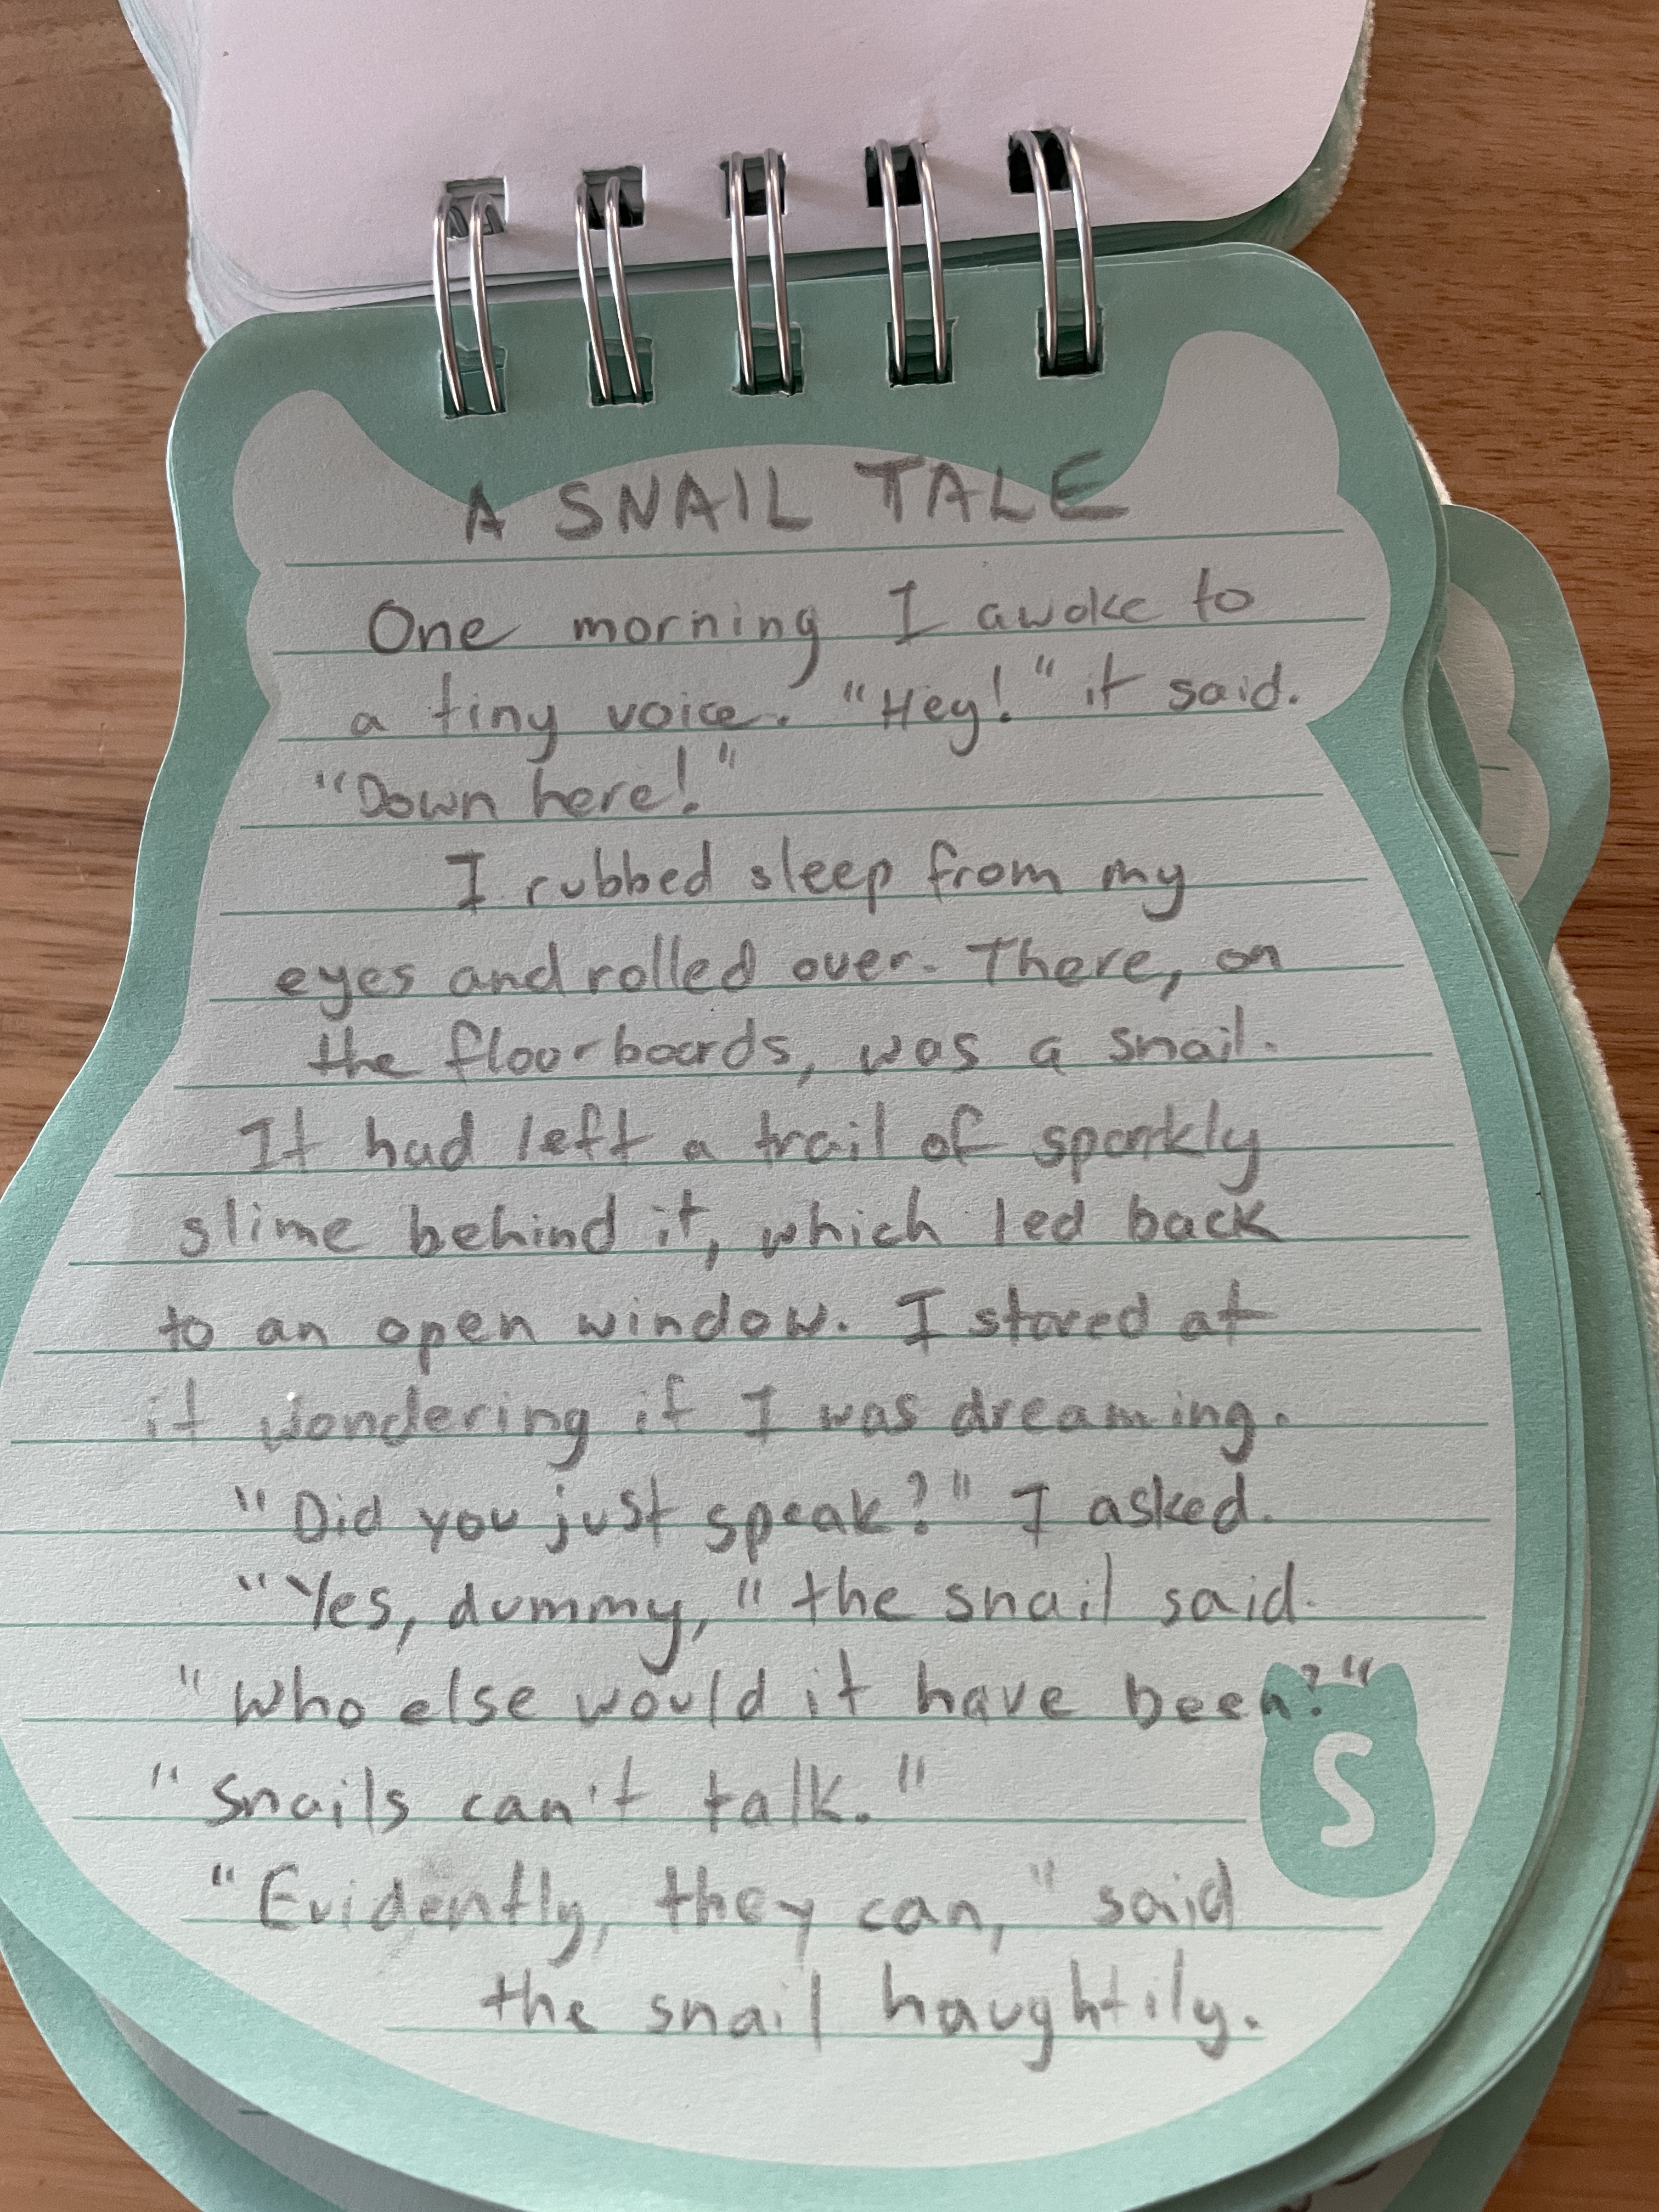 A SNAIL TALE
One morning I awoke to
a tiny voice. "Hey!" it said.
"Down here!"
I rubbed sleep from my
eyes and rolled over. There, on
the floorboards, was a snail.
It had left a trail of sparkly
slime behind it, which led back
to an open window. I stared at
it wondering if I was dreaming.
"Did you just speak?" I asked.
"Yes, dummy," the snail said.
"Who else would it have been?"
"Snails can't talk."
"Evidently, they can," said
the snail haughtily.
S